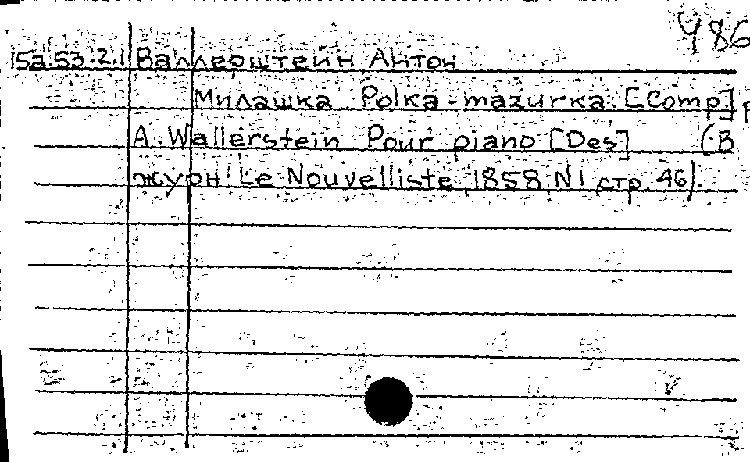 У86
15a.53.2.1 Валлерштейн Антон
Милашка. Polka-mazurka. [Comp] p
A. Wallerstein Pour piano [Des] (В
журн: Le Nouvelliste, 1858, N1 стр. 46).